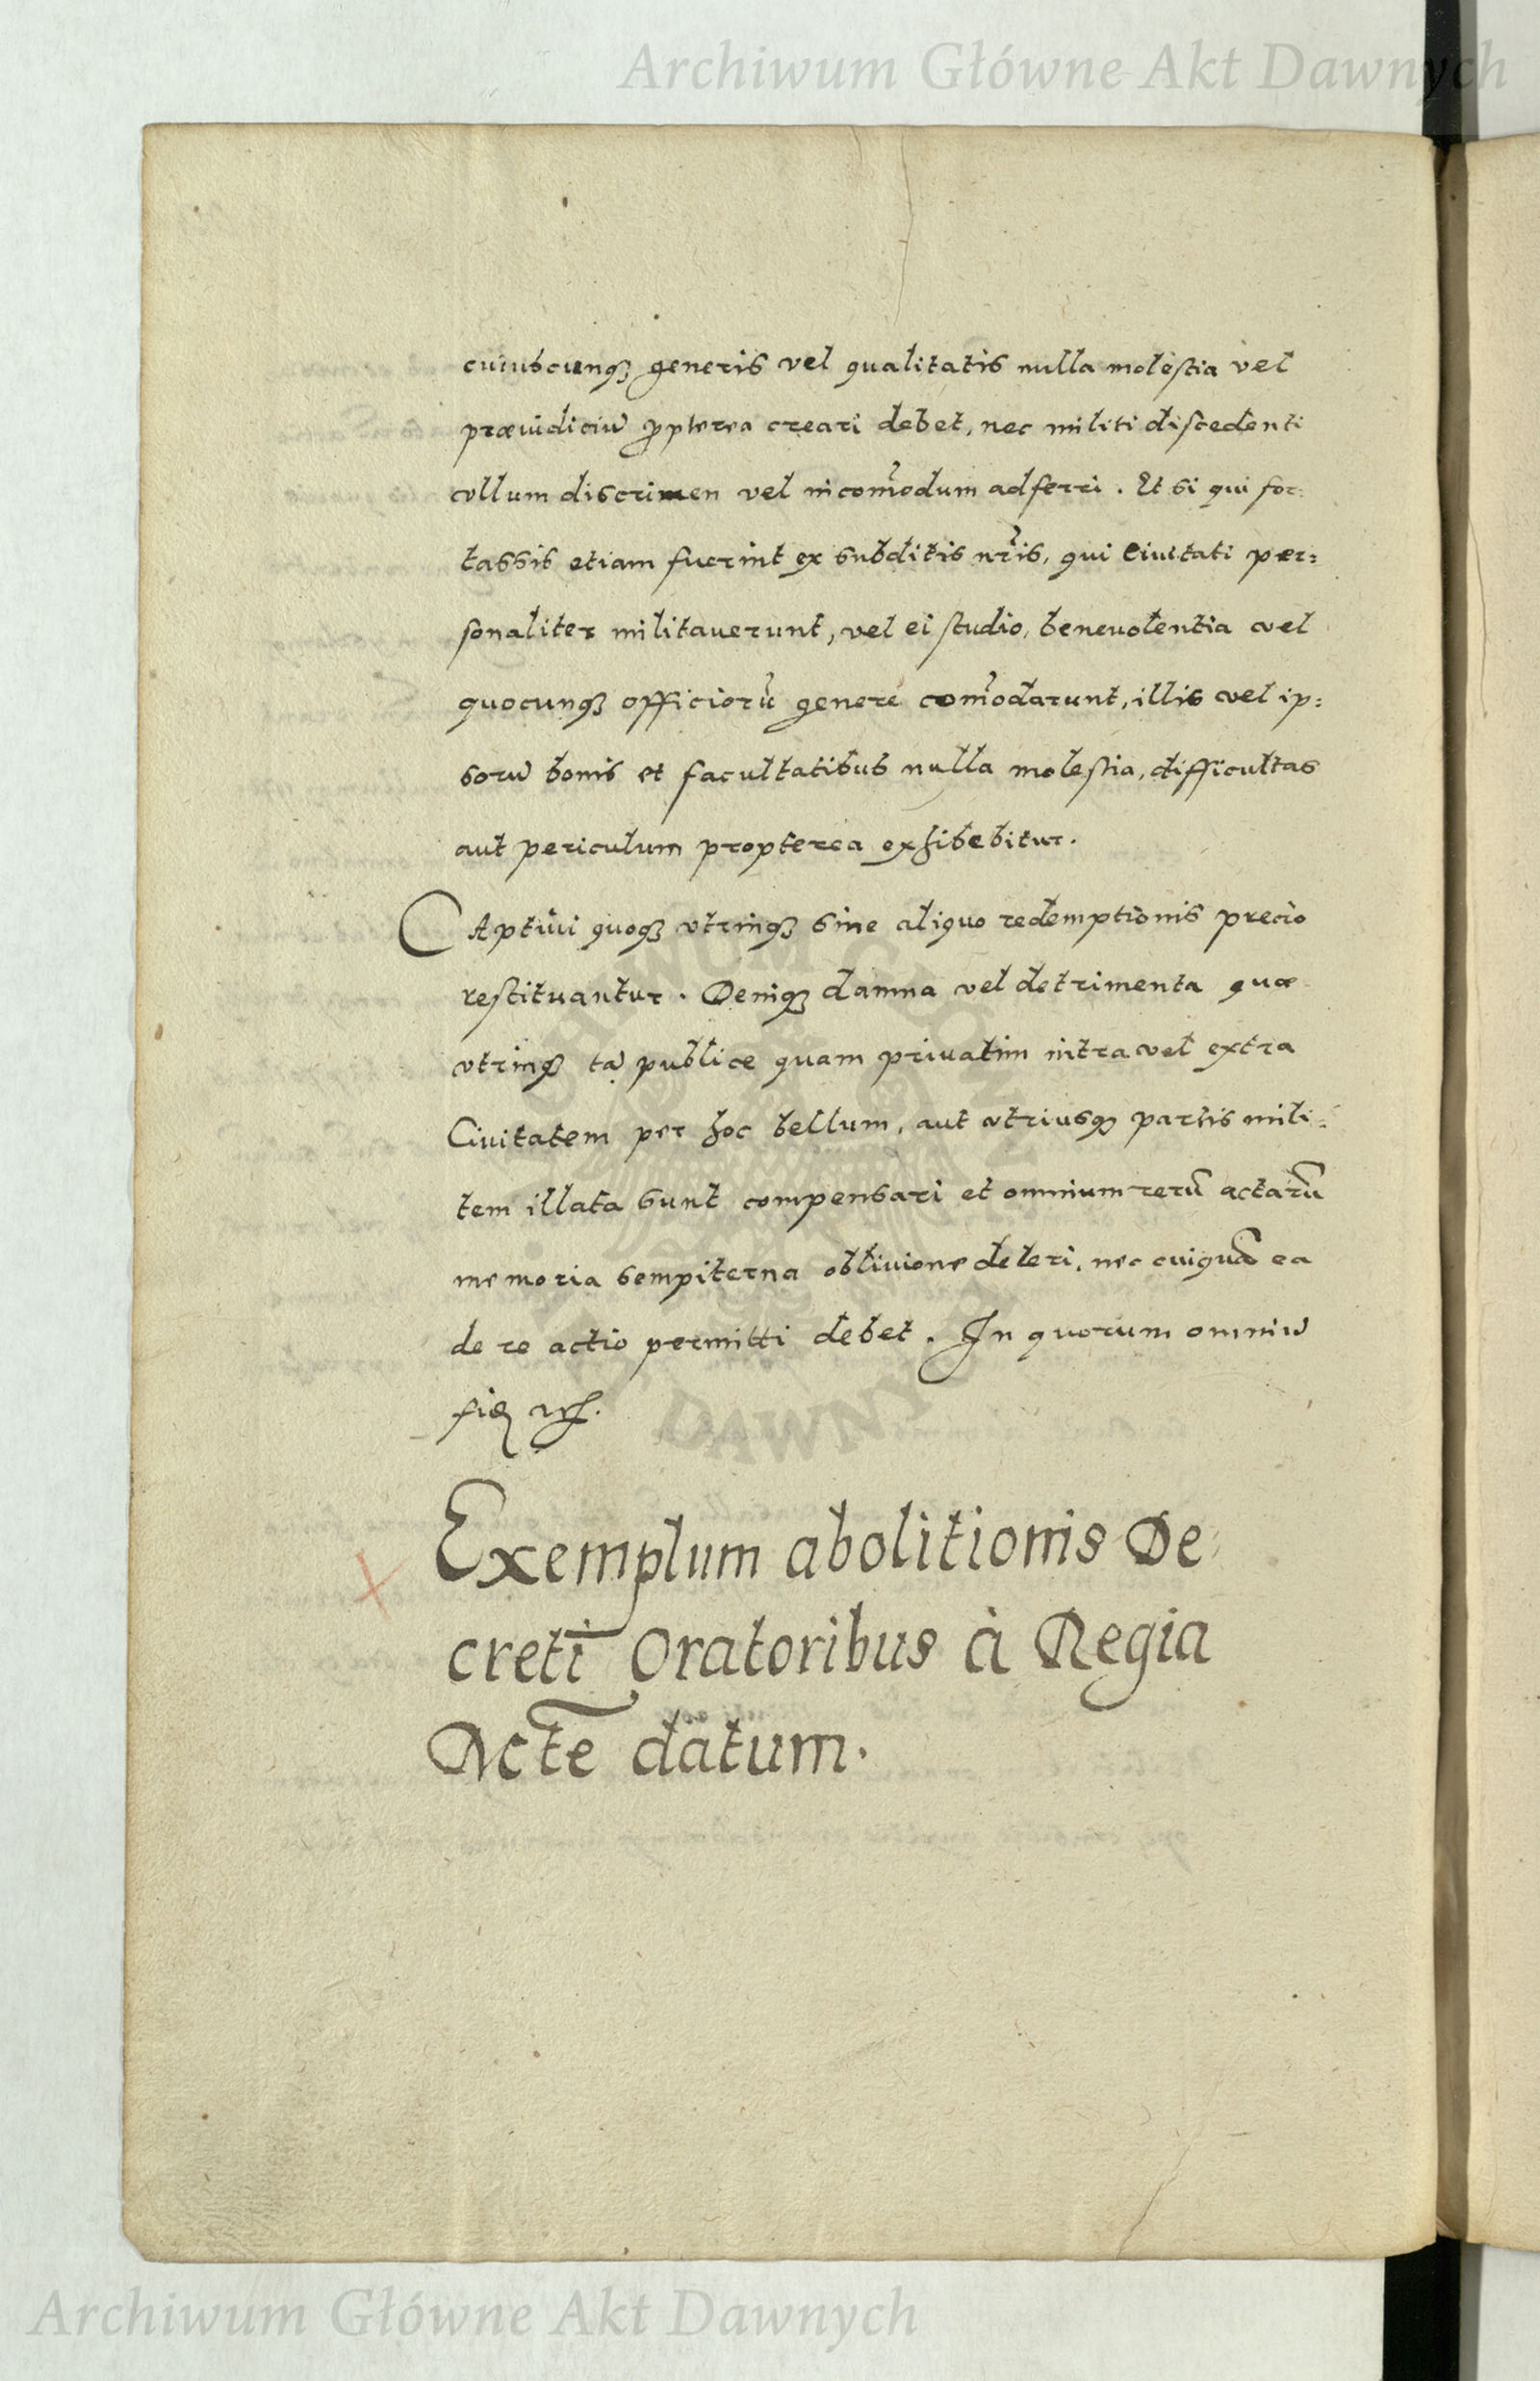 Archiwum Główne Akt Dawnych
cuiuscunqꝫ generis vel qualitatis nulla molestia vel
præiudiciũ ꝓpterea creari debet, nec militi discedenti
vllum discrimen vel incom̃odum adferri. Et si qui for:
tassis etiam fuerint ex subditis nr̃is, qui Ciuitati per:
sonaliter militauerunt, vel ei studio, beneuolentia vel
quocunqꝫ officiorũ genere com̃odarunt, illis vel ip:
sorũ bonis et facultatibus nulla molestia, difficultas
aut periculum propterea exhibebitur.
CAptiui quoqꝫ vtrinqꝫ sine aliquo redemptionis precio
restituantur. Deniqꝫ damna vel detrimenta quæ
vtrinqꝫ tã publice quam priuatim intra vel extra
Ciuitatem per hoc bellum, aut vtriusqꝫ partis mili:
tem illata sunt compensari et omnium rerũ actarũ
memoria sempiterna obliuione deleri, nec cuiquã ea
de re actio permitti debet. In quorum omniũ
fidẽ
Exemplum abolitionis De
creti Oratoribus à Regia
Mcte datum.
DAWNYCH
Archiwum Główne Akt Dawnych